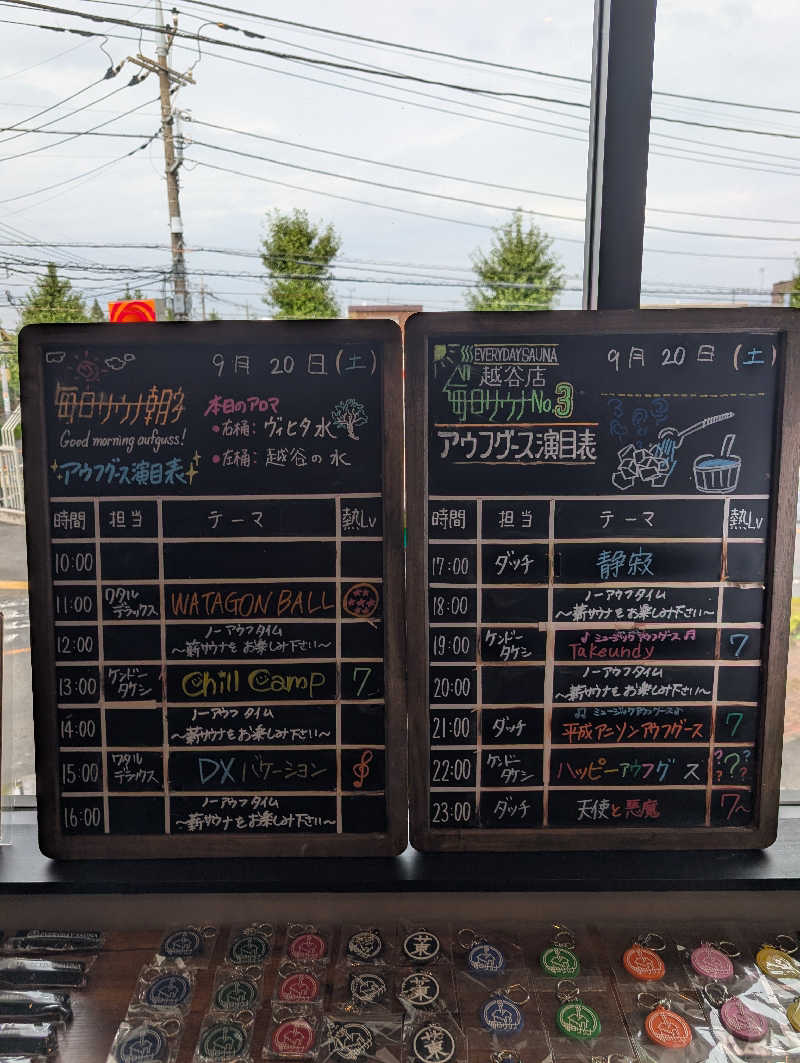 9月 20日(土)
毎日サウナ朝子
Good morning aufguss!
アウフグース演目表
本日のアロマ
●右桶:ヴィヒタ水
●左桶:越谷の水
時間 担当 テーマ 熱Lv
10:00
11:00 ワタルデラックス WATAGON BALL
12:00 ノーアウフタイム
〜薪サウナをお楽しみ下さい〜
13:00 ケンドータケシ Chill Camp 7
14:00 ノーアウフタイム
〜薪サウナをお楽しみ下さい〜
15:00 ワタルデラックス DXバケーション
16:00 ノーアウフタイム
〜薪サウナをお楽しみ下さい〜
EVERYDAY SAUNA
越谷店
毎日サウナNo.3
アウフグース演目表
9月 20日(土)
時間 担当 テーマ 熱Lv
17:00 ダッチ 静寂
18:00 ノーアウフタイム
〜薪サウナをお楽しみ下さい〜
19:00 ケンドータケシ ♪ミュージックアウフグース♬
Takeundy 7
20:00 ノーアウフタイム
〜薪サウナをお楽しみ下さい〜
21:00 ダッチ ♫ミュージックアウフグース♪
平成アニソンアウフグース 7
22:00 ケンドータケシ ハッピーアウフグース ?????
23:00 ダッチ 天使と悪魔 7〜